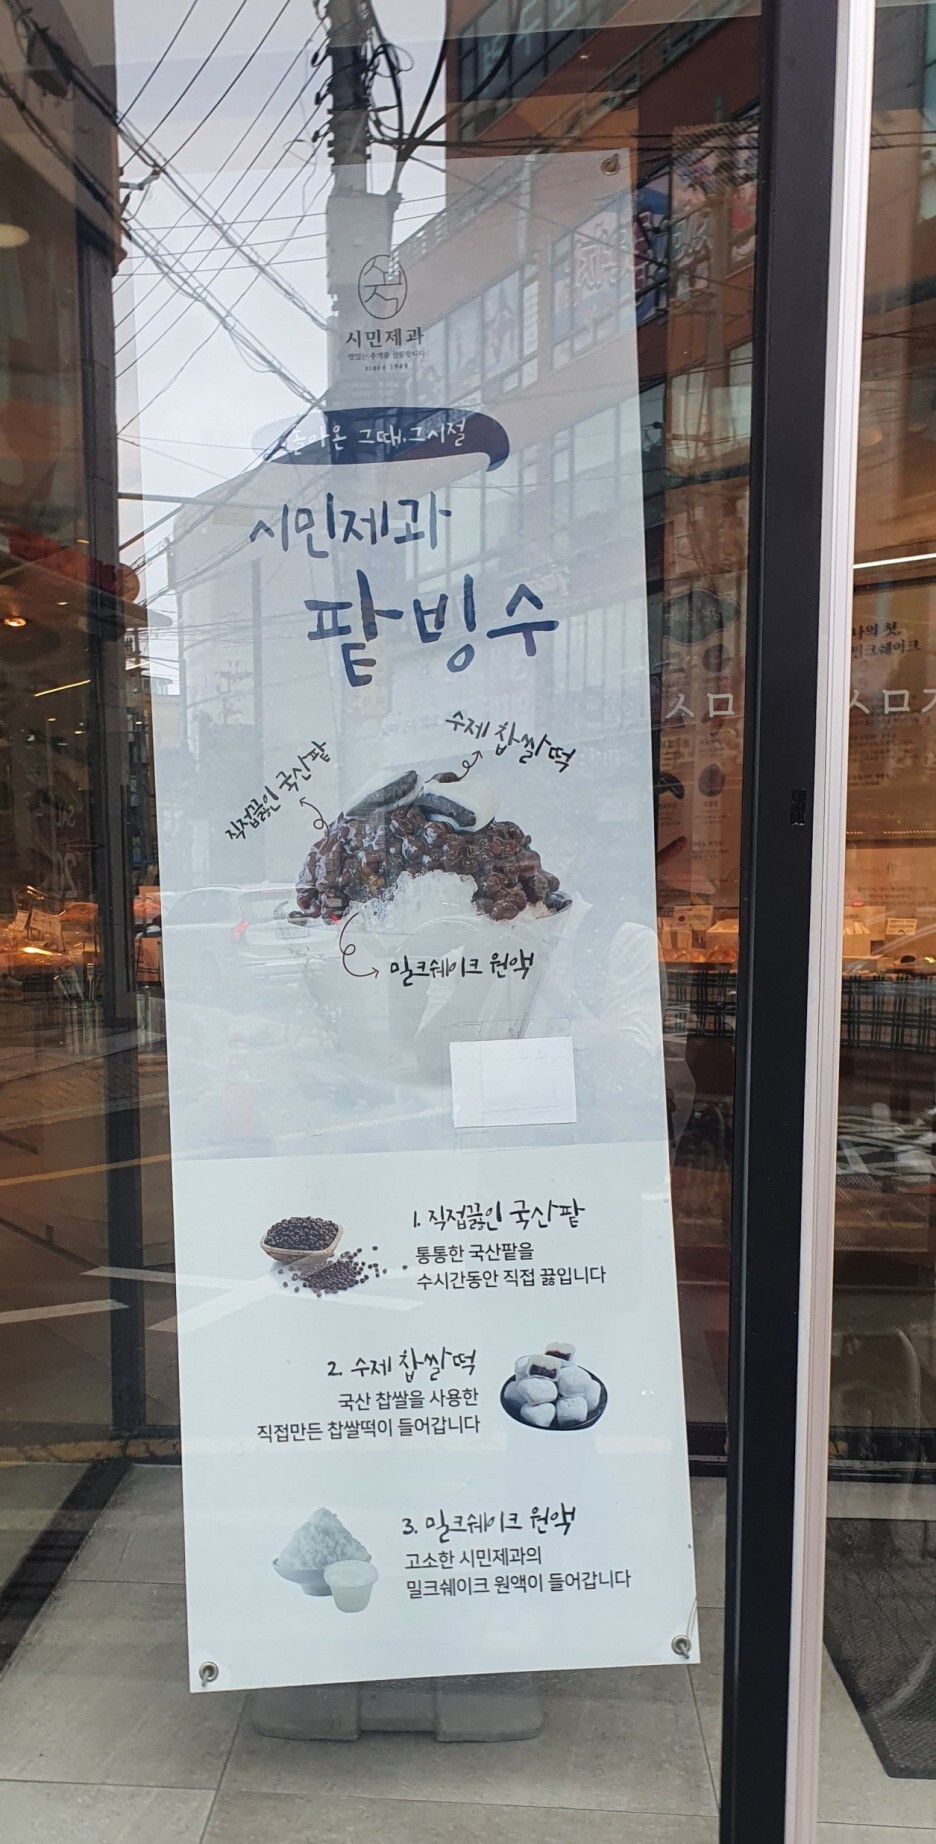 시민제과
since 1949
돌아온 그때, 그시절
시민제과
팥빙수
수제 찹쌀떡
직접끓인 국산팥
밀크쉐이크 원액
1. 직접끓인 국산팥
통통한 국산팥을
수시간동안 직접 끓입니다
2. 수제 찹쌀떡
국산 찹쌀을 사용한
직접만든 찹쌀떡이 들어갑니다
3. 밀크쉐이크 원액
고소한 시민제과의
밀크쉐이크 원액이 들어갑니다
나의 첫,
밀크쉐이크
ㅅㅁ
ㅅㅁㅈ